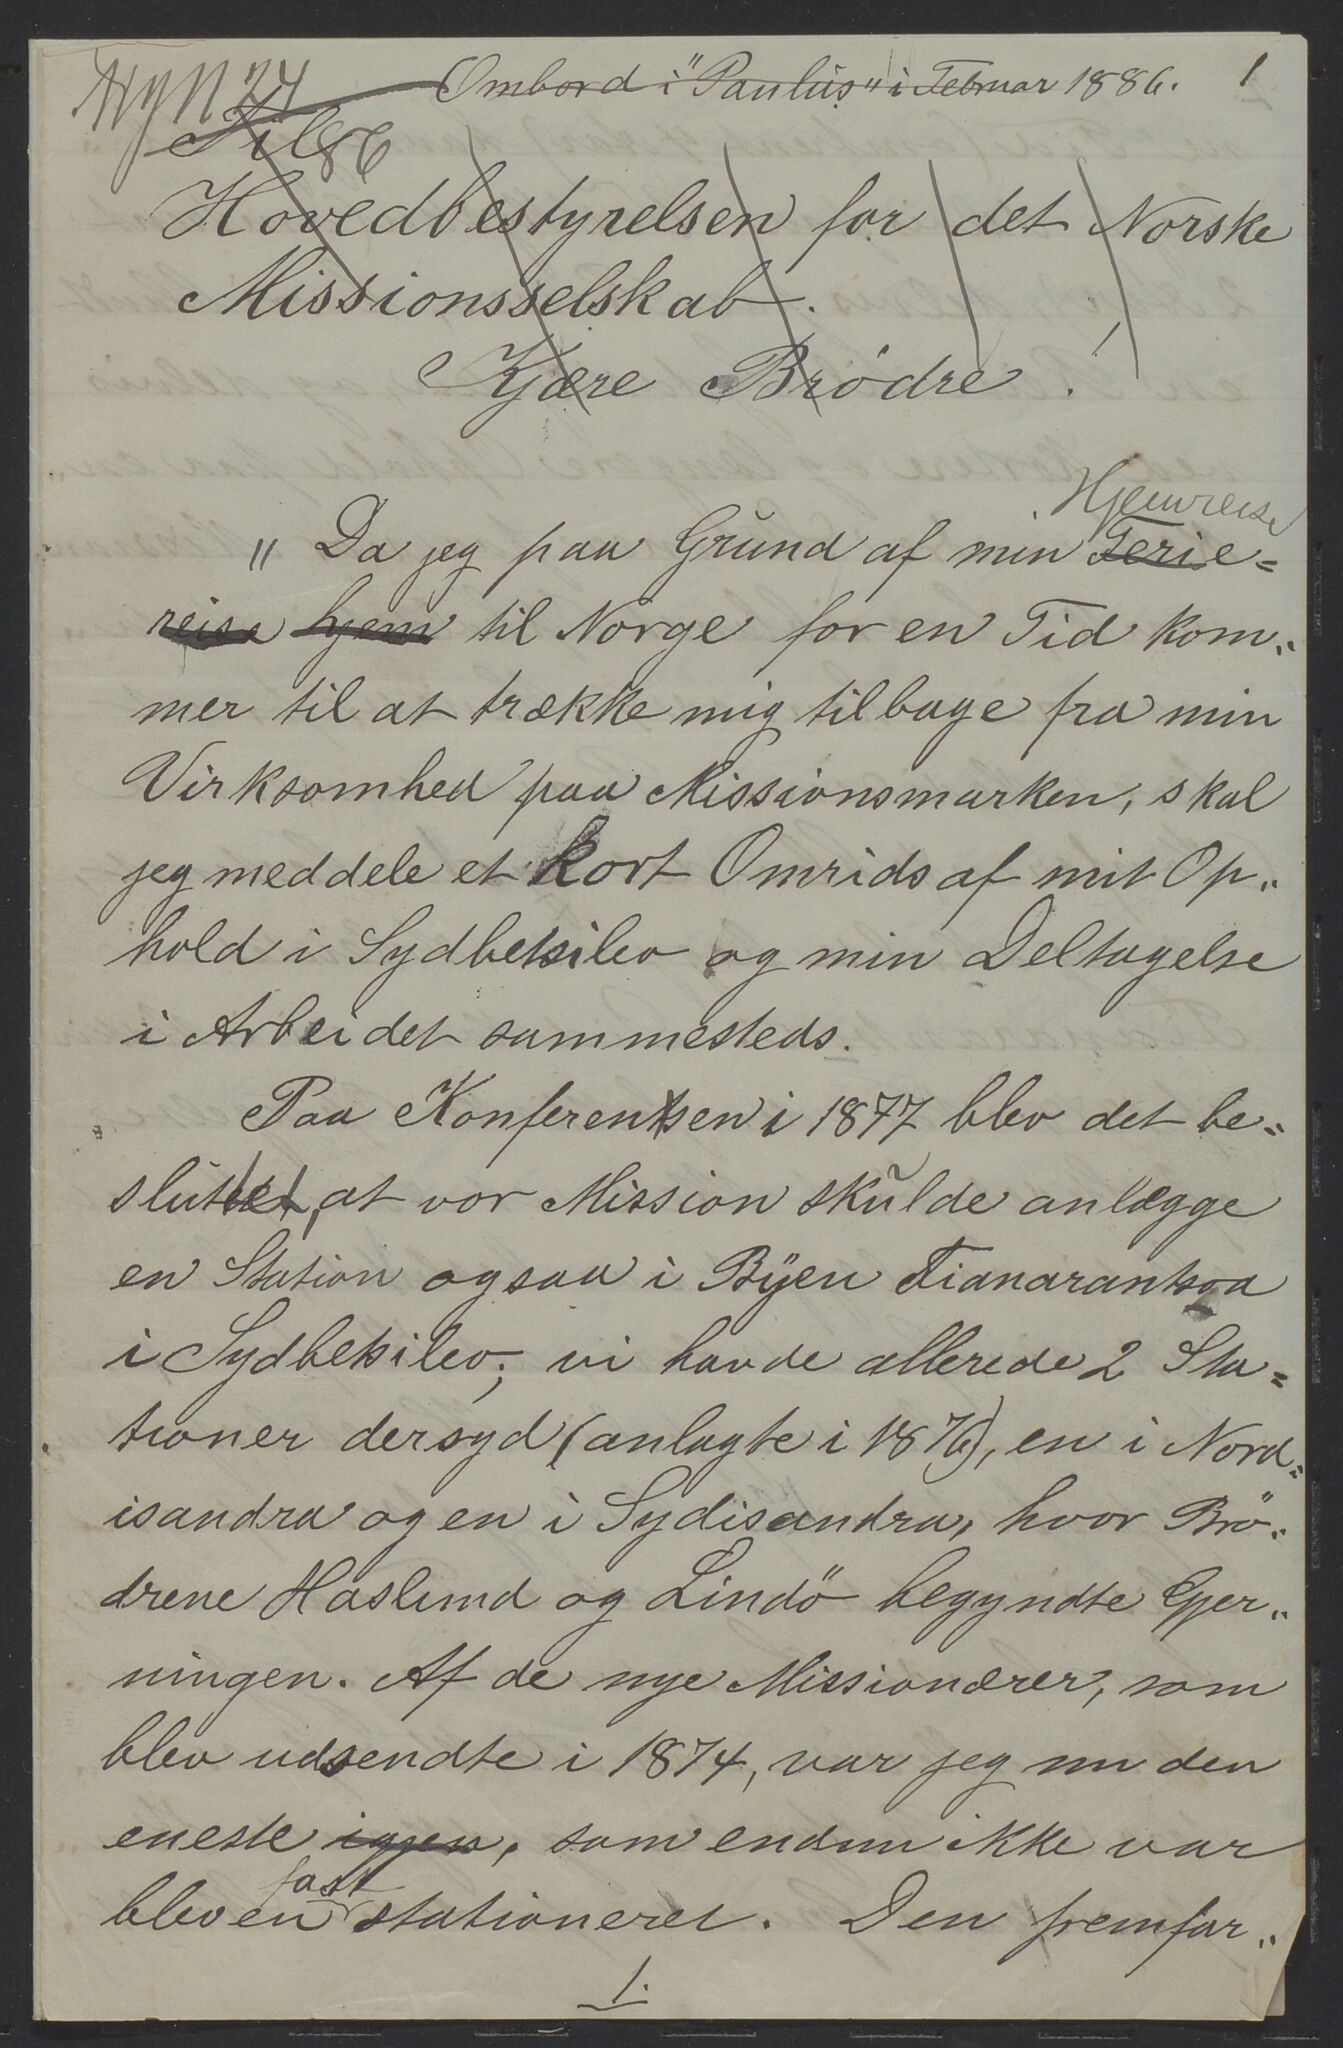 Ombord i "Paulus" i Februar 1886. 1
N 24
86
Til
Hovedbestyrelsen for det Norske
Missionsselskab.
Kjære Brödre!
Hjemreise
" Da jeg paa Grund af min Ferie=
reise hjem til Norge for en Tid kom„
mer til at trække mig tilbage fra min
Virksomhed paa Missionsmarken, skal
jeg meddele et kort Omrids af mit Op„
hold i Sydbetsileo og min Deltagelse
i Arbeidet sammesteds.
Paa Konferentsen i 1877 blev det be=
sluttet, at vor Mission skulde anlægge
en Station ogsaa i Byen Fianarantsoa
i Sydbetsileo; vi havde allerede 2 Sta=
tioner dersyd (anlagte i 1876), en i Nord=
isandra og en i Sydisandra, hvor Brö=
drene Haslund og Lindö begyndte Gjer„
ningen. Af de nye Missionærer, som
blev udsendte i 1874, var jeg nu den
eneste igjen, som endnu ikke var
fast
bleven stationeret. Den fremfar„
1.